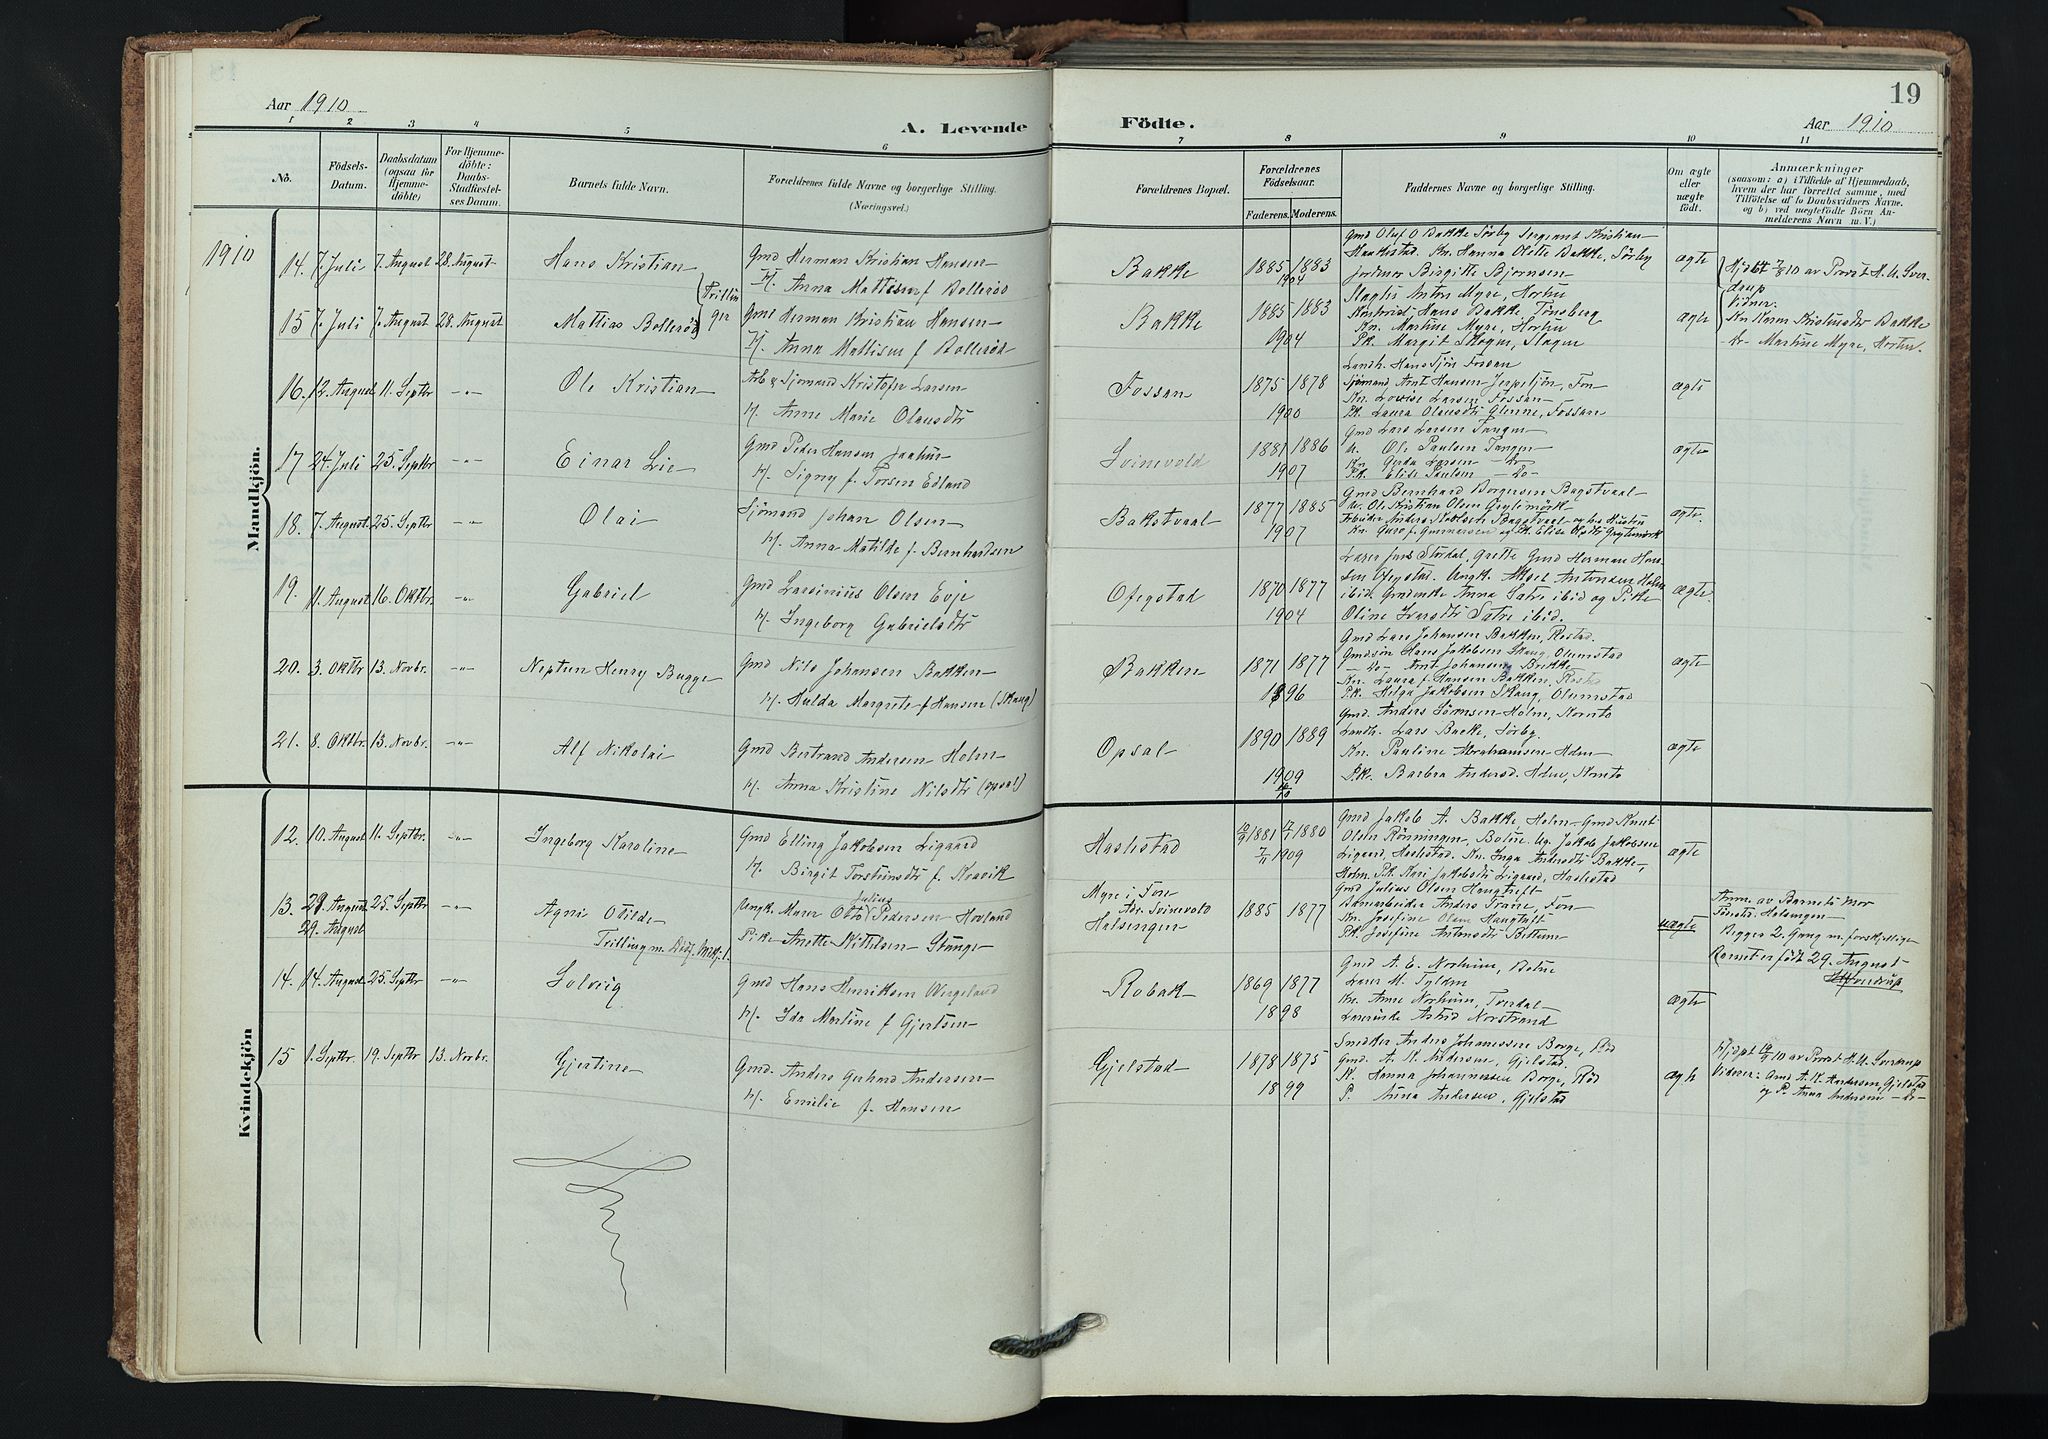 19
Aar 1910
A. Levende Födte.
Aar 1910
1 2 3 4 5 6 7 8 9 10 11
No.
Födsels-Datum.
Daabsdatum (ogsaa for Hjemme-döbte)
For Hjemme-döbte: Daabs-Stadfæstel-ses Datum.
Barnets fulde Navn.
Forældrenes fulde Navne og borgerlige Stilling. (Næringsvei.)
Forældrenes Bopæl.
Forældrenes Födselsaar.
Faderens. Moderens.
Faddernes Navne og borgerlige Stilling.
Om ægte eller uægte født.
Anmærkninger
(saasom: a) i Tilfælde af Hjemmedaab,
hvem der har forrettet samme, med
Tilföielse af to Daabsvidners Navne.
og b) ved uegtefödte Börn An-
melderens Navn m. V.)
1910
Mandkjön.
14. 7. Juli 7. August 28. August Hans Kristian
Gmd Herman Kristian Hansen
H. Anna Mattisen f Bollerød
Bakke 1885 1883
1904
Gmd Oluf O Bakke Sørby Sergeant Kristian
Kn. Hanna Olette Bakke, Sørby
Jordmor Birgitte Bjørnsen
ægte
Hjdbt 7/8 10 av Provst H. U. Sver-
drup
Vidner:
Trillinger
15 7. Juli 7. August 28. August Mattias Bollerød
Gmd Herman Kristian Hansen
H. Anna Mattisen f Bollerød
Bakke 1885 1883
1904
Slagts Anton Myre, Horten
Hans Bakke, Tønsberg
Kn. Martine Myre, Horten
Pk. Margit Skogen, Slagen
ægte
Kn Karen Kristiansdtr Bakke
do Martine Myre, Horten.
16. 12. August 11. Septbr -"- Ole Kristian
Arb & Sjømand Kristofer Larsen
H. Anne Marie Olausdtr
Fossan 1875 1878
1900
Landh. Hans Sjøn Fossan
Sjømand Arnt Hansen Jerpetjøn, Fon
Kn. Lovise Larsen Fossan
Pk. Laura Olausdtr Glenne, Fossan
ægte
17 24. Juli 25. Septbr -"- Einar Lie
Gmd Peder Hansen
H. Signy f. Torsen Edland
Svinevold 1881 1886
1907
Gmd Lars Larsen Tangen
U. Ole Paulsen Tangen
Kn Gerda Larsen -do-
Pk. Elise Paulsen -do-
ægte
18. 7. August 25. Septbr -"- Olai
Sjømand Johan Olsen
H. Anna Matilde f. Bernhardsen
Bakstvaal 1877 1885
1907
Gmd Bernhard Borgersen Bagstvaal
Ole Kristian Olsen Grytemørk
Arbeider Anders Bagstvaal og hs Hustru
Kn. Guro f. Gunnersen og Pk. Elise Olsdtr Grytemørk
ægte.
19. 11. August 16. Oktbr. -"- Gabriel
Gmd Larsinius Olsen Evje
H. Ingeborg Gabrielsdtr
Ofegstad 1870 1877
1904
Lærer Jens Stordal, Gretti Gmd Herman Han-
sen Ofegstad. Ungk. Antonsen Holm
ibid. Gmdenke Anna Satre ibid og Pike
Oline Satre ibid.
ægte.
20. 3. Oktbr 13. Novbr. -"- Neptun Henry Bugge
Gmd Nils Johansen Bakken
H. Hulda Margrete f Hansen (Skaug)
Bakken 1871 1877
1896
Gmd Lars Johansen Bakken, Røstad.
Gmdssøn Hans Jakobsen Skaug, Olumstad
-do- Arnt Johansen Brekke
Kn. Laura f. Hansen Bakken
Pk. Helga Jakobsen Skaug, Olumstad
ægte
21. 8. Oktbr. 13. Novbr. -"- Alf Nikolai
Gmd Bertrand Andersen Holm
H. Anna Kristine Nilsdtr (Opsal)
Opsal 1890 1889
1909
Gmd. Anders Sørensen Holm,
Landh. Lars Bache, Sørby.
Kn. Pauline Abrahamsen Holm
P.k. Barbra Andersd. Holm,
ægte
Kvindekjön
12. 10. August 11. Septbr. -"- Ingeborg Karoline
Gmd Elling Jakobsen Ligaard
H. Birgit Torsteinsdtr f. Kvavik
Haslestad 1881 1880
1909
Gmd Jakob A. Bakke Holm. Gmd Knut
Olsen Rönningen, Botne. Ug. Jakob Jakobsen
Ligaard, Haslestad. Kn. Inga Andersdtr Bakke,
Holm. Pk. Kari Jakobsdtr Ligaard, Haslestad
ægte
13. 29. August 25. Septbr. -"- Agnes Otilde
29. August
Trilling m. Dödf. Mkj. 1.
Ungk. Murer Otto Julius Pedersen Hovland
Pike Anette Kittelsen Stange
Myre i Fon
Adr. Svinevold
Halsingen
1885 1877
Gmd Julius Olsen Haugtuft
Anders Trane, Fon
Kn. Josefine Olsen Haugtuft
Pk. Josefine Antonsdtr Bettum
uægte
Anm. av Barnets Mor
Begges 2. Gang m. forskjellige
Barnet er født 29. August
HUSverdrup
14. 14. August 25. Septbr -"- Solveig
Gmd Hans Henriksen Wergeland
H. Ida Martine f Gjertsen
Robak 1869 1877
1898
Gmd A. E. Norheim, Botne
Lærer M. Tylden
Kn. Anne Norheim, Tverdal
Lærerinde Astrid Norstrand
ægte
15 1. Septbr. 19. Septbr 13. Novbr. Gjertine
Gmd. Anders Gerhard Andersen
H. Emelie f. Hansen
Gjelstad 1878 1875
1899
Snedker Anders Johannessen Borge, Röd
Gmd. A. K. Andersen, Gjelstad.
K. Hanna Johannessen Borge, Röd
P. Anna Andersen, Gjelstad
ægte
Hjdpt 19/9 10 av Provst H. U. Sverdrup
Vidner: Gmd A. K. Andersen, Gjelstad
og P. Anna Andersen -do-